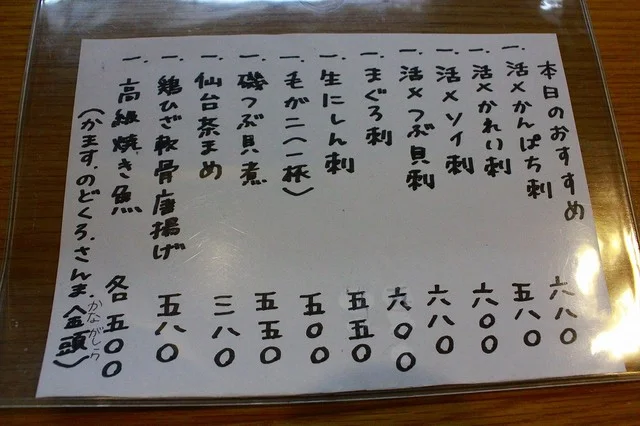 本日のおすすめ
一、活〆かんぱち刺 六八〇
一、活〆かれい刺 五八〇
一、活〆ソイ刺 六〇〇
一、活〆つぶ貝刺 六八〇
一、まぐろ刺 六〇〇
一、生にしん刺 五五〇
一、毛がニ(一杯) 五〇〇
一、磯つぶ貝煮 五五〇
一、仙台茶まめ 三八〇
一、鶏ひざ軟骨唐揚げ 五八〇
一、高級焼き魚 各五〇〇
(かます、のどくろ、さんま、金頭)
かながしら